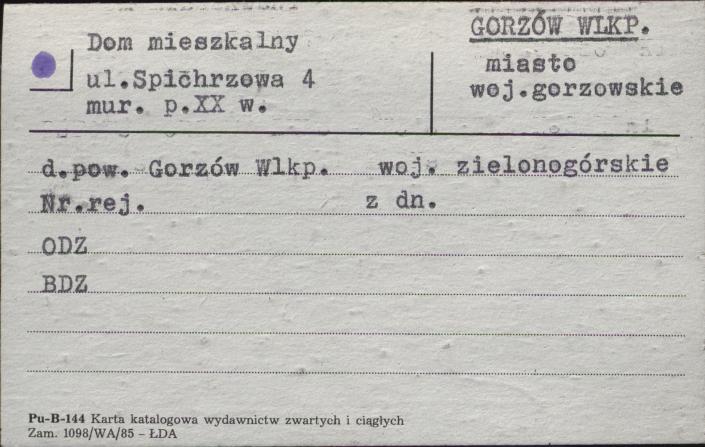 Dom mieszkalny
ul.Spichrzowa 4
mur. p.XX w.
GORZÓW WLKP.
miasto
woj.gorzowskie
d.pow. Gorzów Wlkp. woj. zielonogórskie
Nr.rej. z dn.
ODZ
BDZ
Pu-B-144 Karta katalogowa wydawnictw zwartych i ciągłych
Zam. 1098/WA/85 – ŁDA